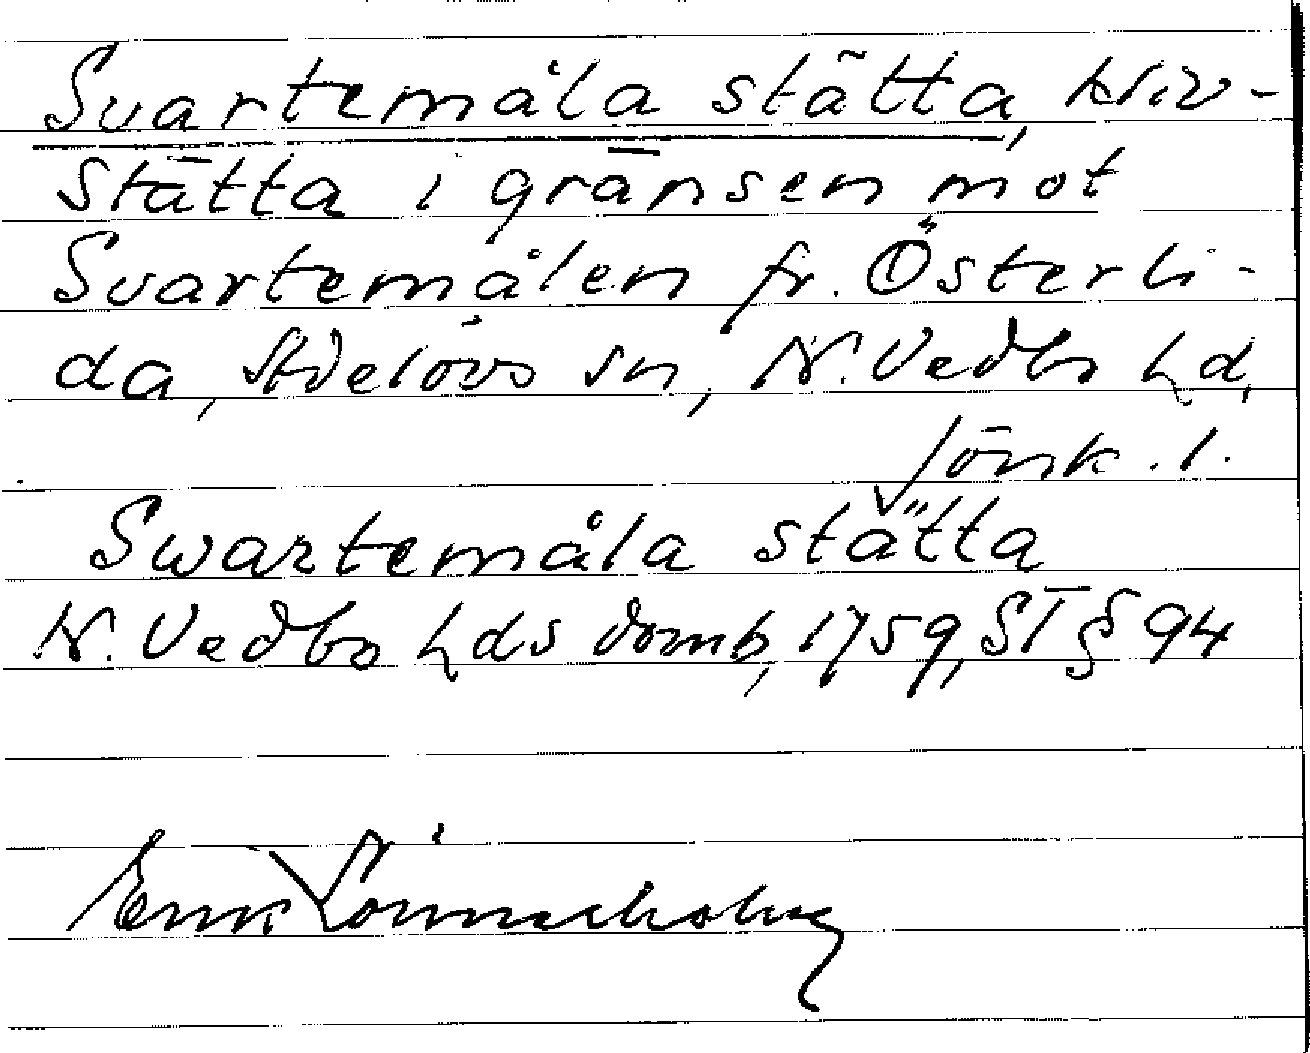 Svartemåla stätta, kliv-
stätta i gränsen mot
Svartemålen fr. Österli-
da, Adelövs sn, N. Vedbo hd,
Jönk. l.
Swartemåla stätta
N. Vedbo hds domb, 1759, ST § 94
Erik